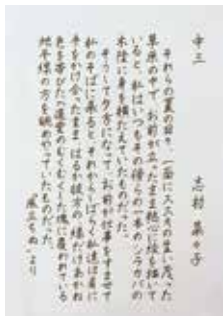 志村
それらの夏の日々、一面にススキの生い茂った
草原の中で、お前が立ったまま熱心に絵を描いて
いると、私はいつもその傍らの一本のシラカバの
木陰に身を横たえていたものだった。
そうして夕方になって、お前が仕事をすませて
私のそばに来ると、それからしばらく私達は肩に
手をかけ合ったまま、はるか彼方の、縁だけあかね
色を帯びた入道雲のむくむくした塊に覆われている
地平線の方を眺めやっていたものだった。
風立ちぬ より